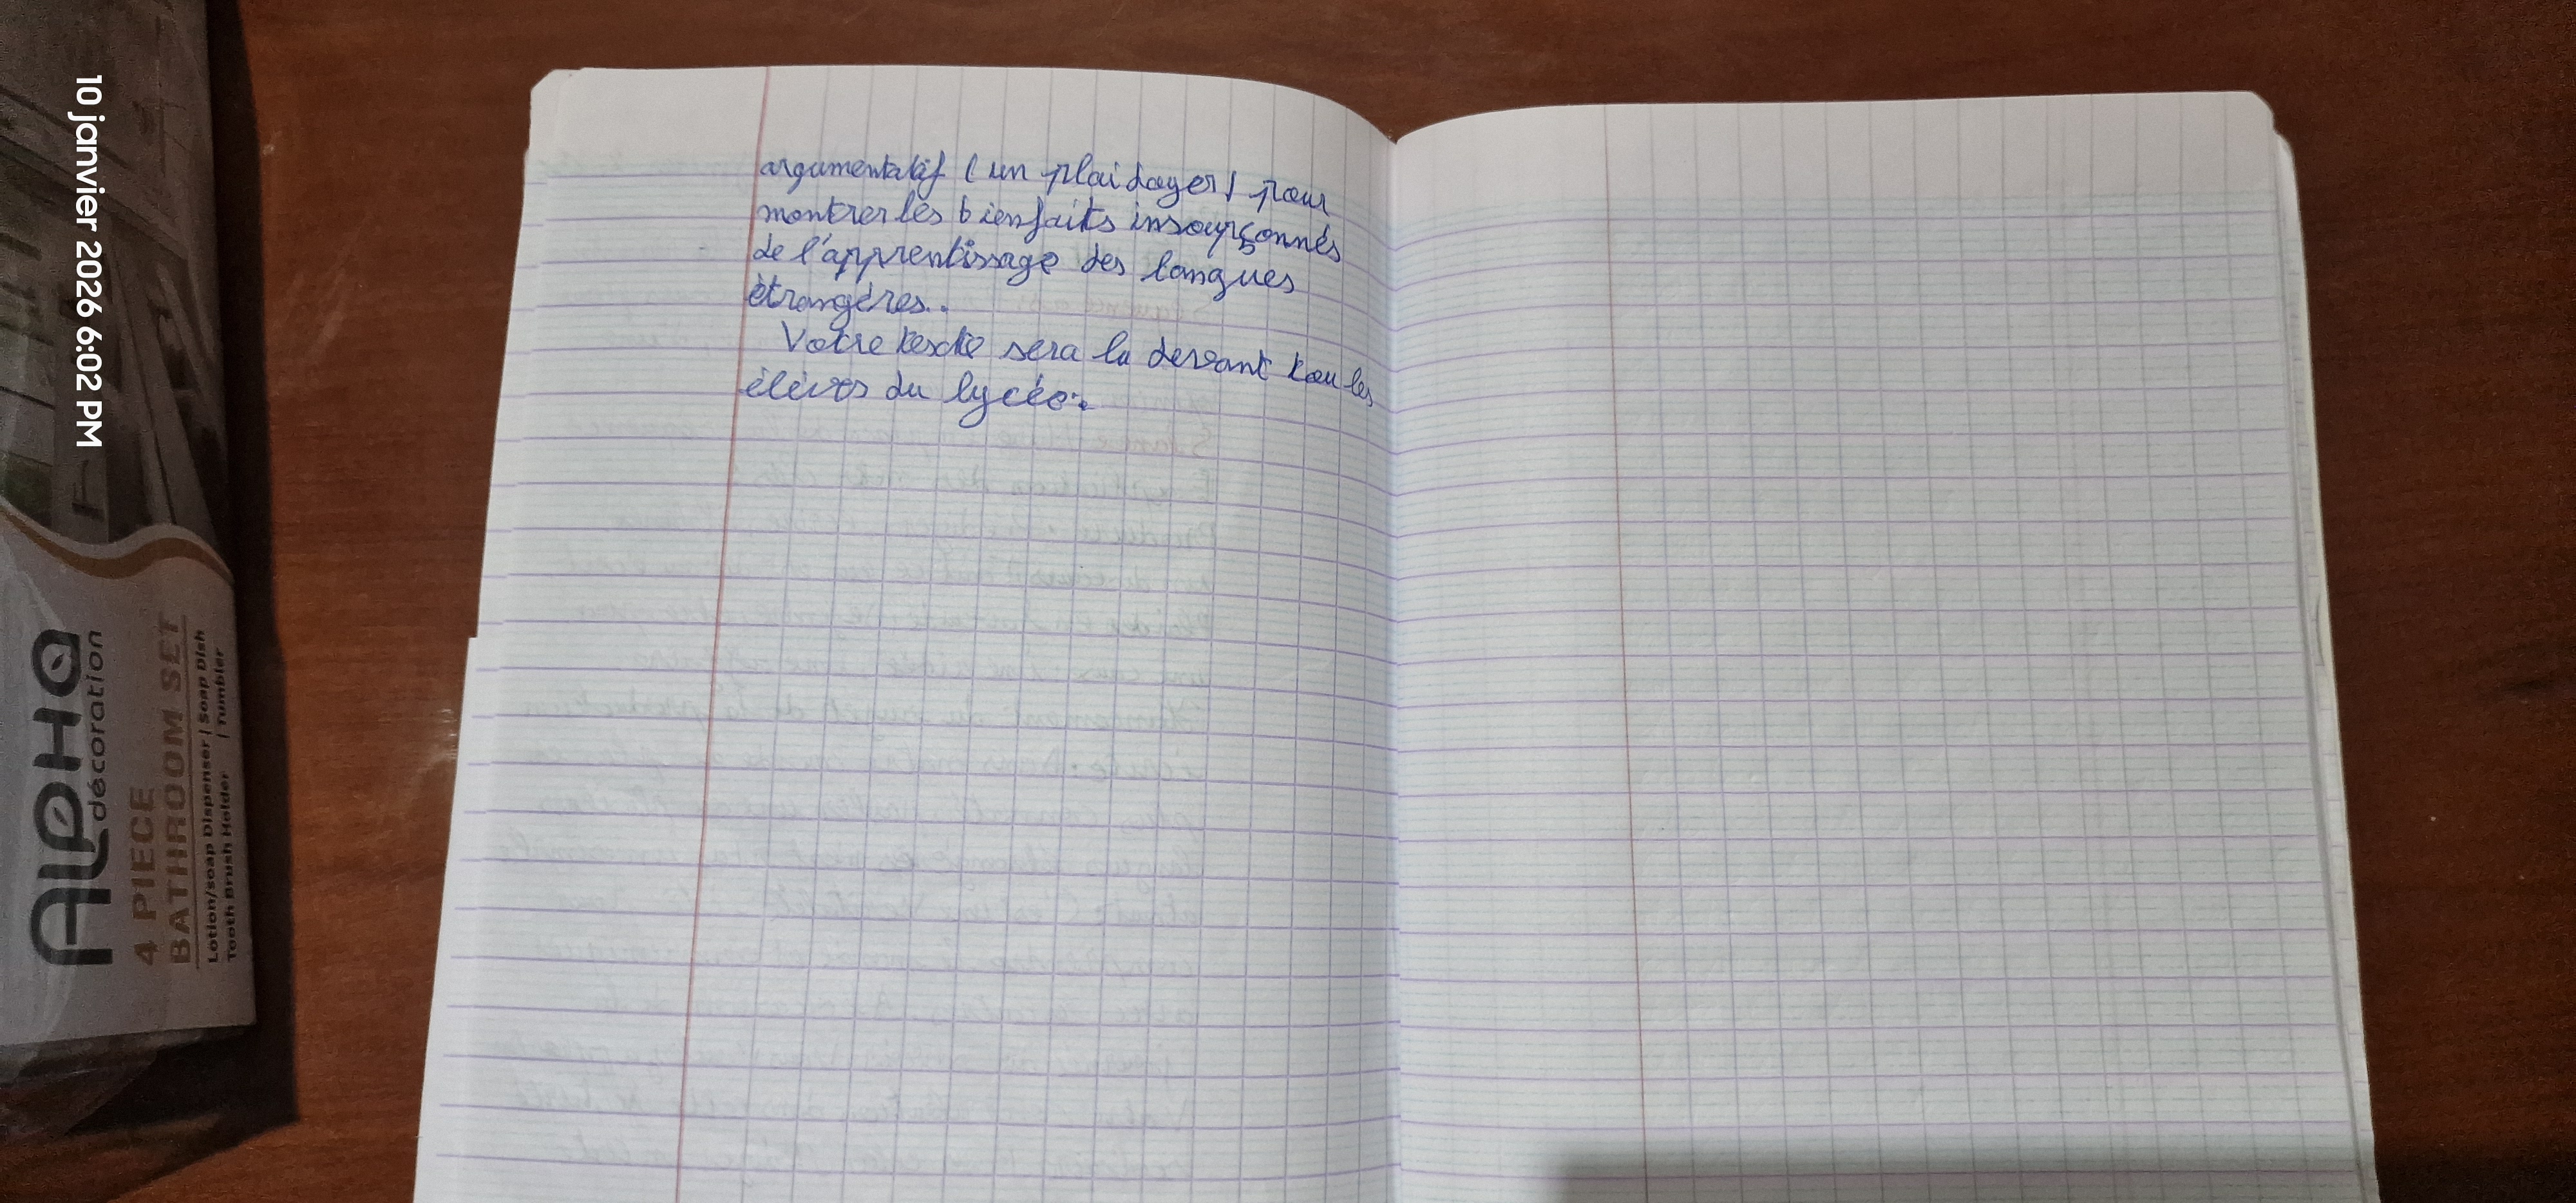 argumentatif ( un plaidoyer ) pour
montrer les bienfaits insoupçonnés
de l'apprentissage des langues
étrangères..
Votre texte sera lu devant tou les
élèves du lycée.
10 janvier 2026 6:02 PM
ALPHA
décoration
4 PIECE
BATHROOM SET
Lotion/soap Dispenser | Soap Dish
Tooth Brush Holder | Tumbler